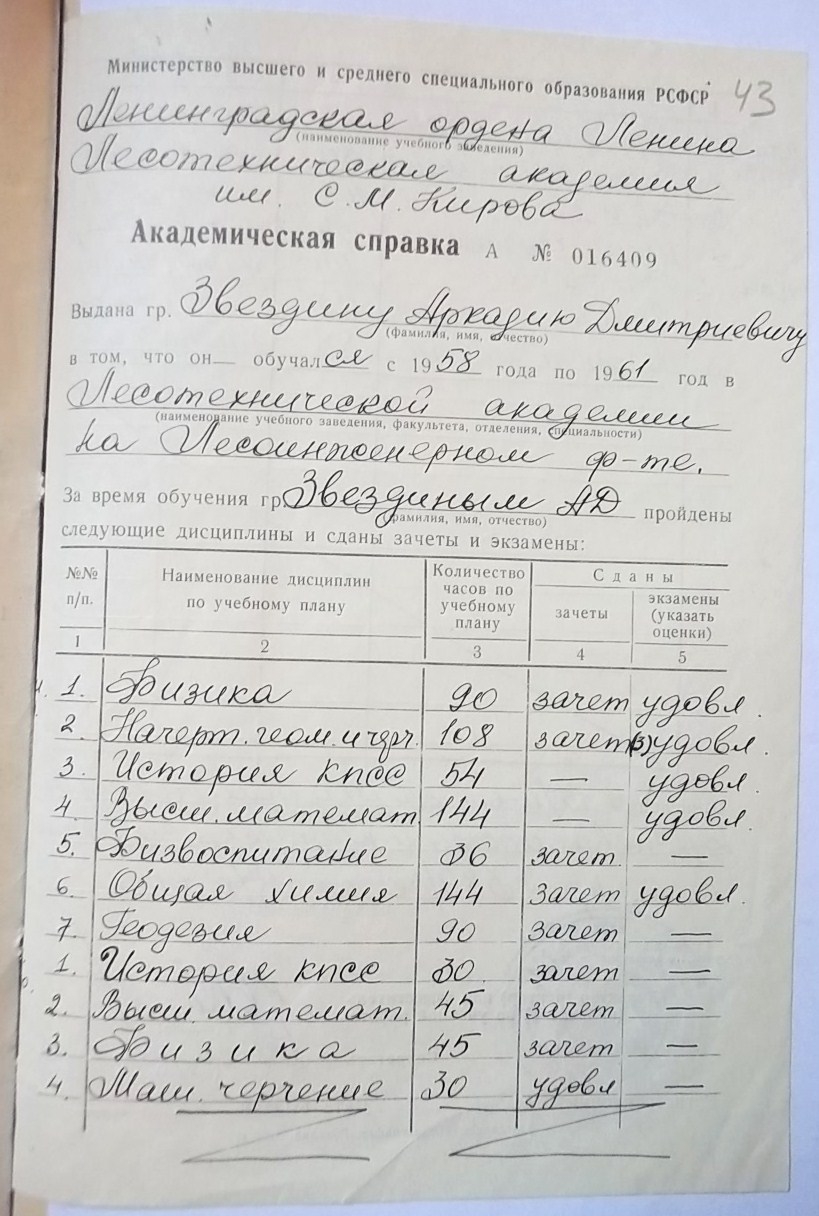 Министерство высшего и среднего специального образования РСФСР 43
Ленинградская ордена Ленина
(наименование учебного заведения)
Лесотехническая академия
им. С.М. Кирова
Академическая справка А № 016409
Выдана гр. Звездину Аркадию Дмитриевичу
(фамилия, имя, отчество)
в том, что он— обучался с 1958 года по 1961 год в
Лесотехнической академии
(наименование учебного заведения, факультета, отделения, специальности)
на Лесоинженерном ф-те.
За время обучения гр. Звездиным АД пройдены
(фамилия, имя, отчество)
следующие дисциплины и сданы зачеты и экзамены:
№№ п/п. Наименование дисциплин по учебному плану Количество часов по учебному плану Сданы зачеты экзамены (указать оценки)
1 2 3 4 5
1. Физика 90 зачет удовл.
2. Начерт. геом. и черч. 108 зачет(3) удовл.
3. История кпсс 54 — удовл.
4. Высш. математ. 144 — удовл.
5. Физвоспитание 36 зачет —
6. Общая химия 144 зачет удовл.
7. Геодезия 90 зачет —
1. История кпсс 30 зачет —
2. Высш. математ. 45 зачет —
3. Физика 45 зачет —
4. Маш. черчение 30 удовл —